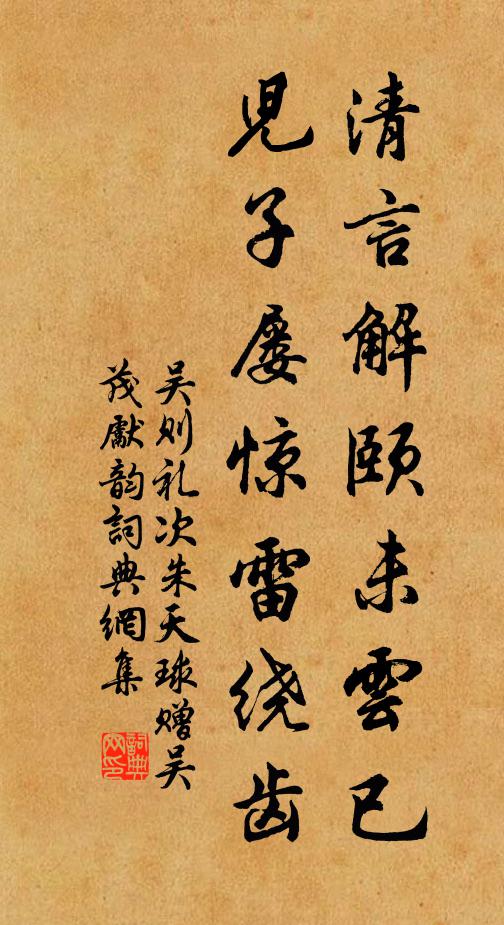 清言解頤未雲已
児子屡惊雷绕齿
吴则礼次朱天球赠吴
茂獻韵詞典網集
詞典网印